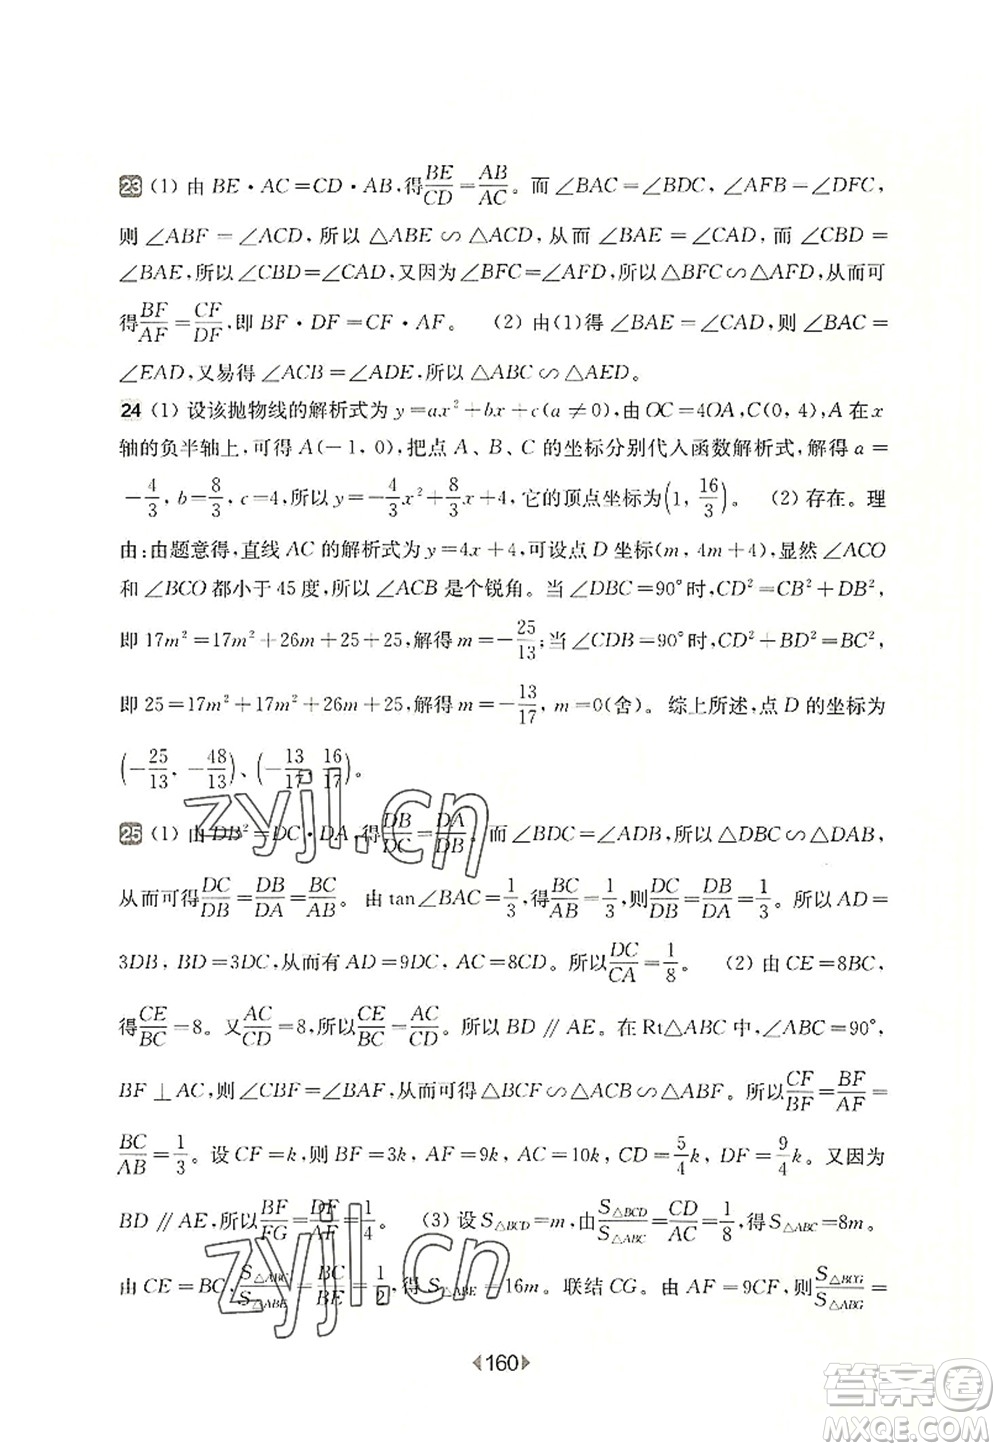 23 (1) 由 BE·AC=CD·AB,得 BE/CD=AB/AC。而 ∠BAC=∠BDC, ∠AFB=∠DFC,
则 ∠ABF=∠ACD,所以 △ABE∽△ACD,从而 ∠BAE=∠CAD,而 ∠CBD=
∠BAE,所以∠CBD=∠CAD,又因为∠BFC=∠AFD,所以△BFC∽△AFD,从而可
得 BF/AF=CF/DF,即 BF·DF=CF·AF。 (2) 由(1)得 ∠BAE=∠CAD,则 ∠BAC=
∠EAD,又易得∠ACB=∠ADE,所以△ABC∽△AED。
24 (1) 设该抛物线的解析式为 y=ax²+bx+c(a≠0),由 OC=4OA,C(0, 4),A 在 x
轴的负半轴上,可得 A(-1, 0),把点 A、B、C 的坐标分别代入函数解析式,解得 a=
-4/3, b=8/3, c=4,所以 y=-4/3x²+8/3x+4,它的顶点坐标为(1, 16/3)。 (2) 存在。理
由:由题意得,直线 AC 的解析式为 y=4x+4,可设点 D 坐标(m, 4m+4),显然 ∠ACO
和 ∠BCO 都小于 45 度,所以 ∠ACB 是个锐角。当 ∠DBC=90°时,CD²=CB²+DB²,
即 17m²=17m²+26m+25+25,解得 m=-25/13;当 ∠CDB=90°时,CD²+BD²=BC²,
即 25=17m²+17m²+26m+25,解得 m=-13/17, m=0(舍)。综上所述,点 D 的坐标为
(-25/13, -48/13)、(-13/17, 16/17)。
25 (1) 由 DB²=DC·DA,得 DB/DC=DA/DB。而∠BDC=∠ADB,所以△DBC∽△DAB,
从而可得 DC/DB=DB/DA=BC/AB。由 tan∠BAC=1/3,得 BC/AB=1/3,则 DC/DB=DB/DA=1/3。所以 AD=
3DB, BD=3DC,从而有 AD=9DC, AC=8CD。所以 DC/CA=1/8。 (2) 由 CE=8BC,
得 CE/BC=8。又 AC/CD=8,所以 CE/BC=AC/CD。所以 BD∥AE。在 Rt△ABC 中,∠ABC=90°,
BF⊥AC,则∠CBF=∠BAF,从而可得△BCF∽△ACB∽△ABF。所以 CF/BF=BF/AF=
BC/AB=1/3。设 CF=k,所以 BF=3k, AF=9k, AC=10k, CD=5/4k, DF=9/4k。又因为
BD∥AE,所以 BF/FG=DF/AF=1/4。 (3) 设 S△BCD=m,由 S△BCD/S△ABC=CD/AC=1/8,得 S△ABC=8m。
由 CE=BC, S△ABC/S△ABE=BC/BE=1/2,得 S△ABE=16m。联结 CG。由 AF=9CF,则 S△BCG/S△ABG=
160
zyjl.cn
zyjl.cn
答案圈
MXQE.COM